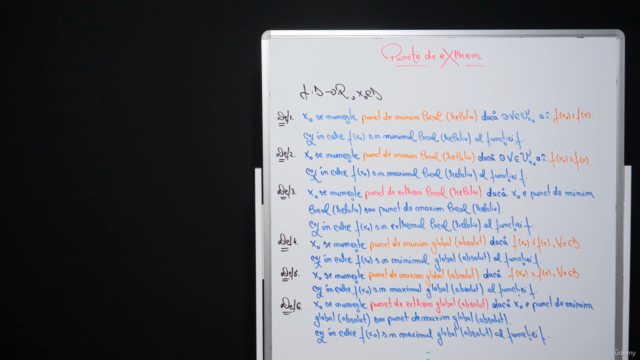 Puncte de extrem
f: D→R, x₀∈D
Def1. x₀ se numește punct de minim local (relativ) dacă ∃V∈𝒱x₀ a.î. f(x₀)≤f(x).
caz în care f(x₀) s.n minimul local (relativ) al funcției f
Def2. x₀ se numește punct de maxim local (relativ) dacă ∃V∈𝒱x₀ a.î. f(x₀)≥f(x).
caz în care f(x₀) s.n maximul local (relativ) al funcției f
Def3. x₀ se numește punct de extrem local (relativ) dacă x₀ e punct de minim
local (relativ) sau punct de maxim local (relativ)
caz în care f(x₀) s.n extremul local (relativ) al funcției f
Def4. x₀ se numește punct de minim global (absolut) dacă f(x₀)≤f(x), ∀x∈D
caz în care f(x₀) s.n minimul global (absolut) al funcției f
Def5. x₀ se numește punct de maxim global (absolut) dacă f(x₀)≥f(x), ∀x∈D
caz în care f(x₀) s.n maximul global (absolut) al funcției f
Def6. x₀ se numește punct de extrem global (absolut) dacă x₀ e punct de minim
global (absolut) sau punct de maxim global (absolut).
caz în care f(x₀) s.n maximul global (absolut) al funcției f.
Udemy